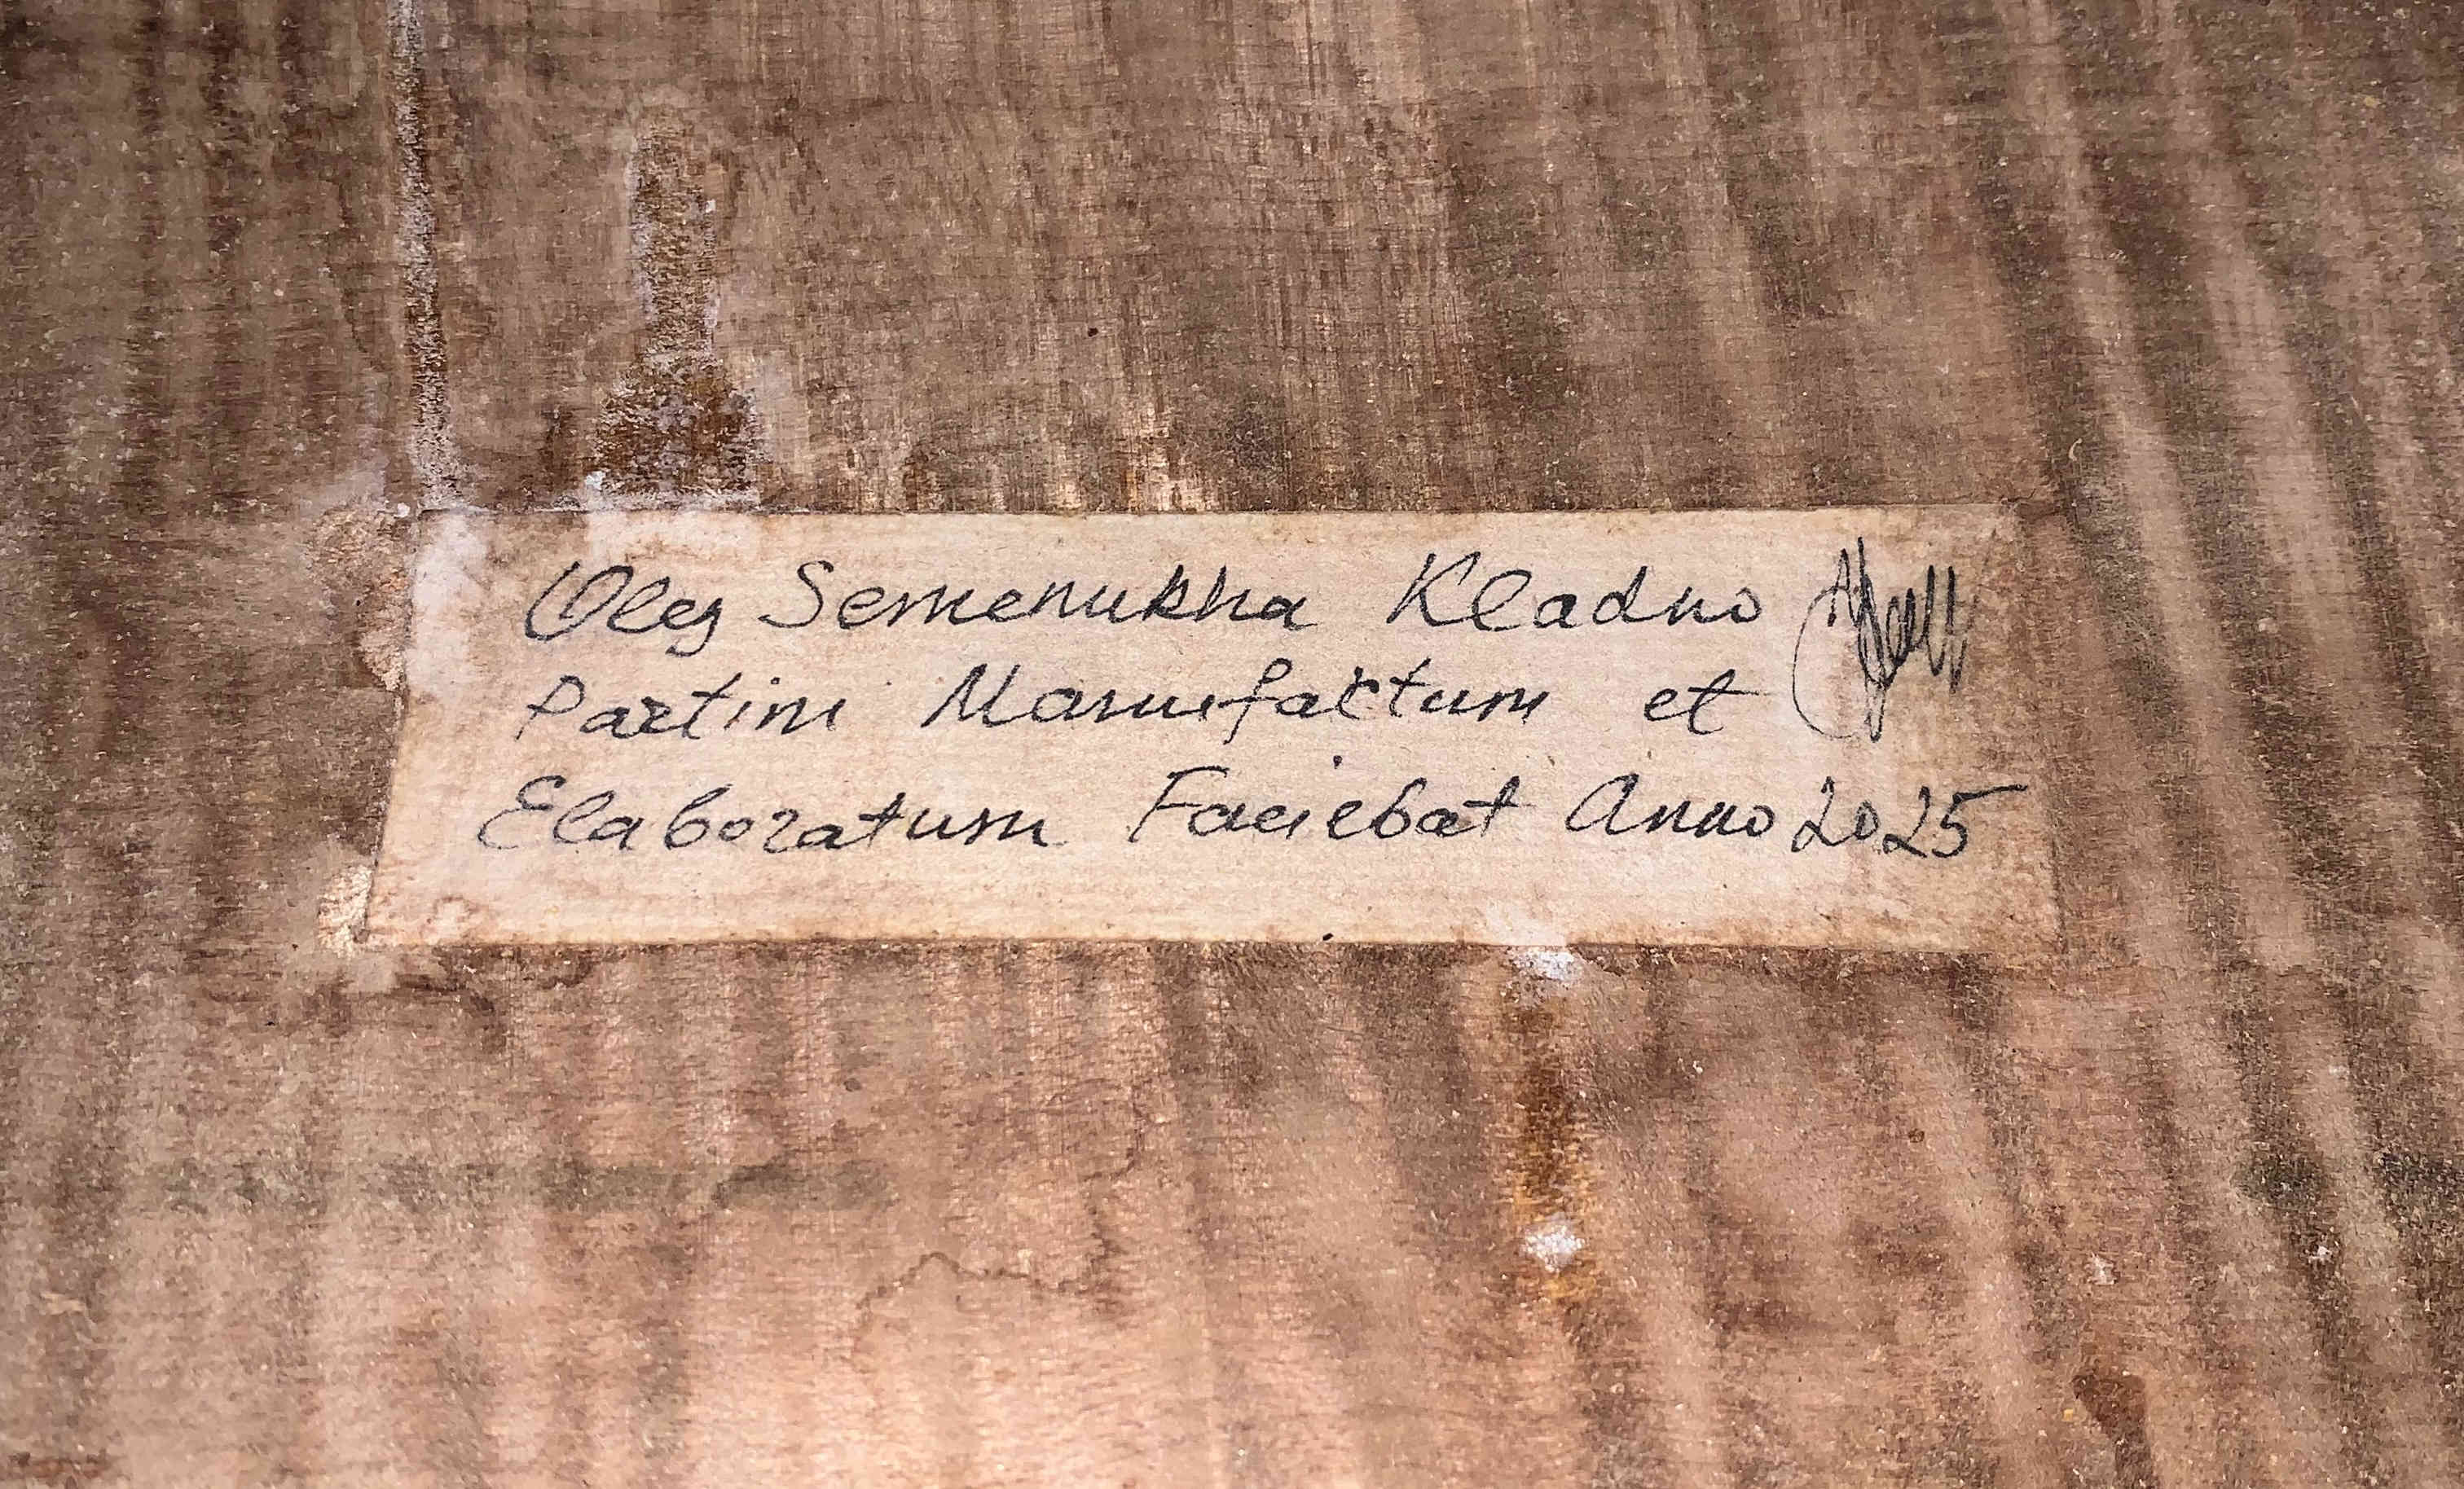 Oleg Semenukha Kladno
Partim Manufaktum et
Elaboratum Faciebat Anno 2025